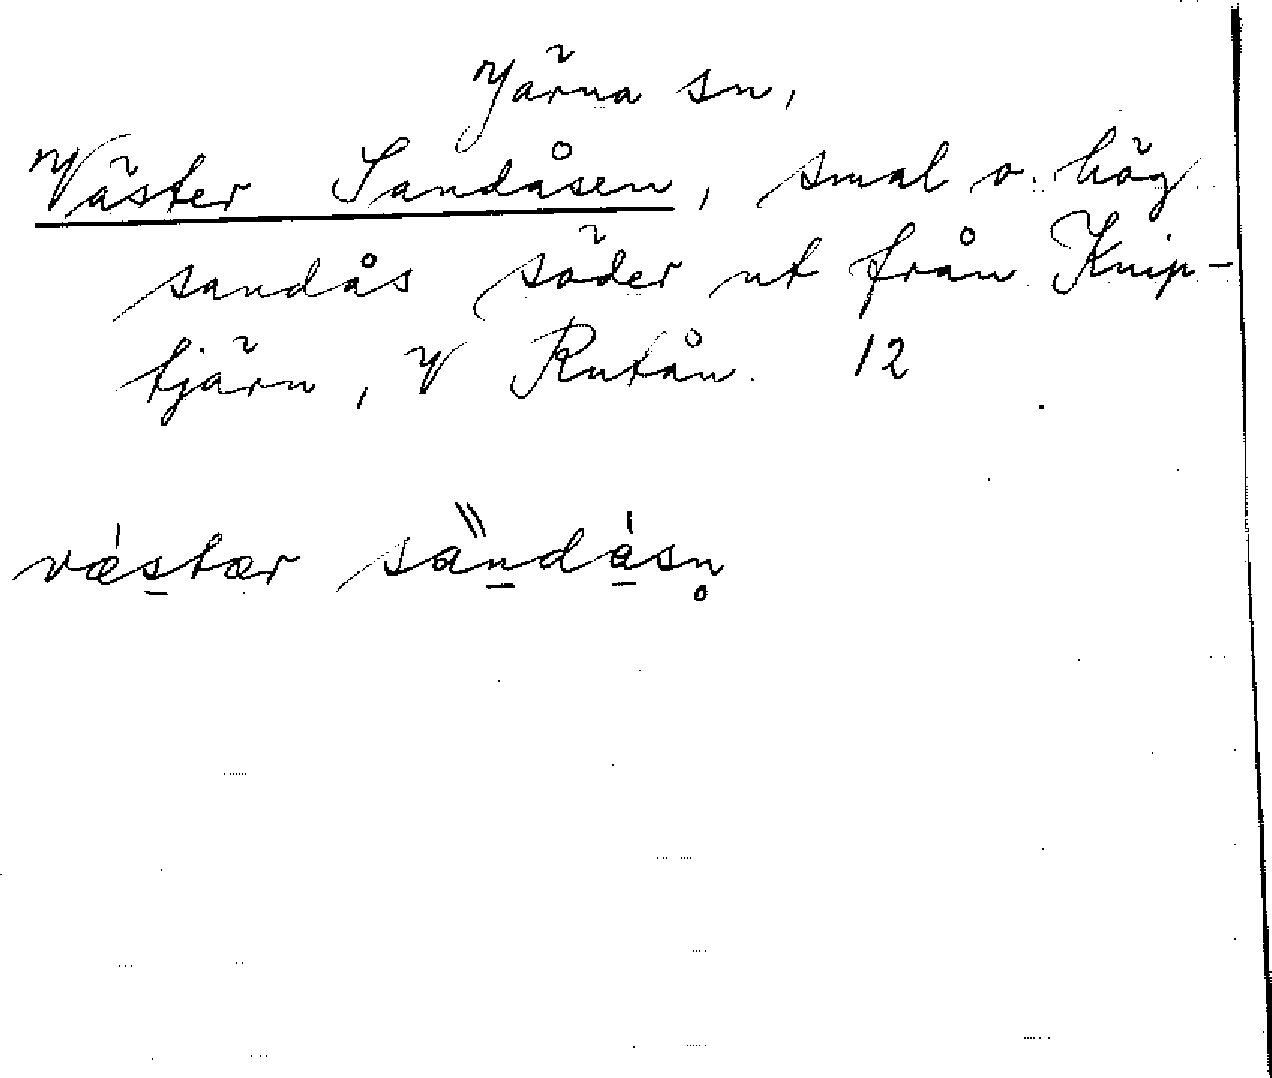 Järna sn,
Väster Sandåsen, smal o. hög
sandås söder ut från Knip-
tjärn, V Rutån. 12
væ̀stær sa̎ndåsn̥